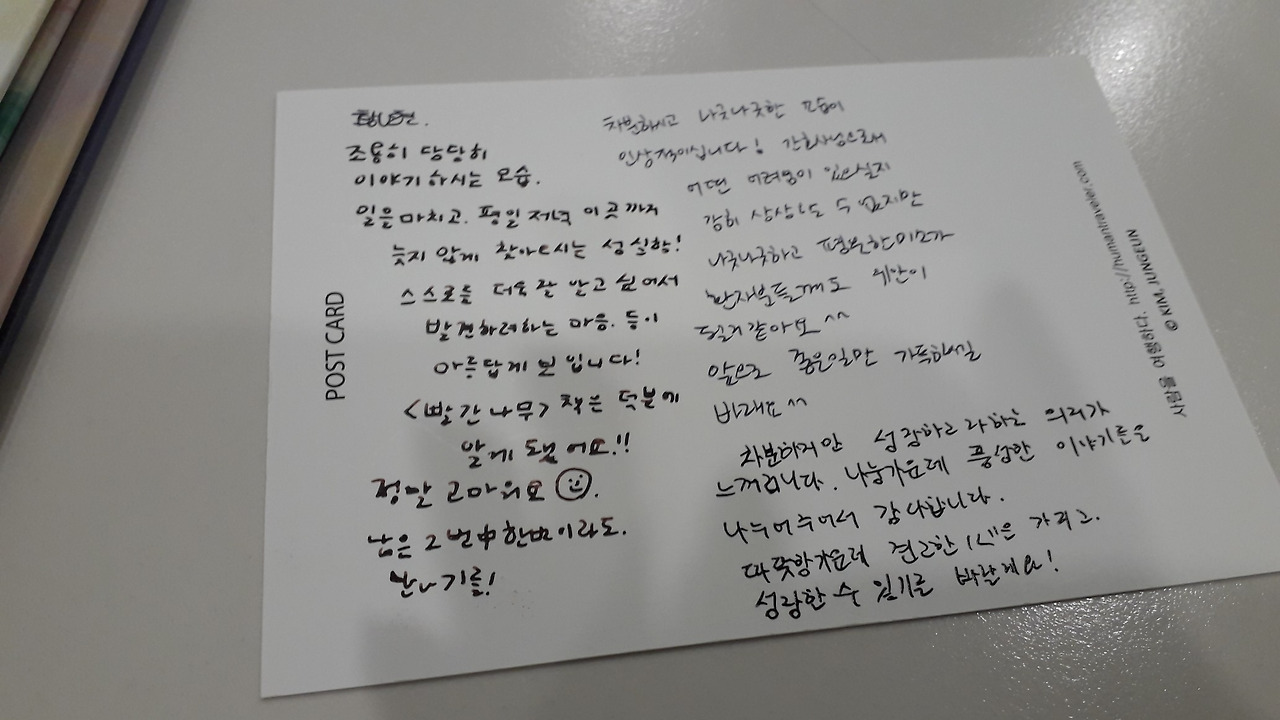 조용히 당당히
이야기 하시는 모습.
일을 마치고. 평일 저녁 이 곳 까지
늦지 않게 찾아오시는 성실함!
스스로를 더욱 잘 알고 싶어서
발견하려하는 마음. 등이
아름답게 보입니다!
<빨간나무> 책은 덕분에
알게 됐어요!!
정말 고마워요
남은 2번中 한번이라도.
만나기를!
차분하시고 나긋나긋한 모습이
인상적이십니다! 간호사님으로서
어떤 어려움이 있으실지
감히 상상할 수 없지만
나긋나긋하고 평온한 미소가
환자분들께도 위안이
될거 같아요^^
앞으로 좋은일만 가득하시길
바래요^^
차분하지만 성장하고자하는 의지가
느껴집니다. 나눔가운데 풍성한 이야기들을
나누어주어서 감사합니다.
따뜻함가운데 견고한 "나"을 가지고.
성장할 수 있기를 바랄게요!
POST CARD
사진을 여행하다. http://humantraveler.com
© KIM, JUNGEUN